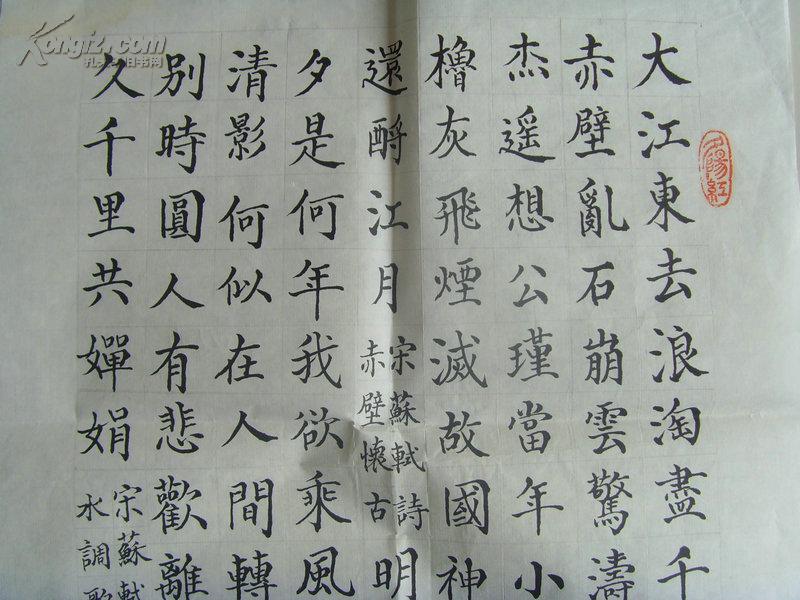 大江東去浪淘盡千
赤壁亂石崩雲驚濤
杰遥想公瑾當年小
櫓灰飛煙滅故國神
還酹江月
宋蘇軾詩
赤壁懷古
明
夕是何年我欲乘風
清影何似在人間轉
别時圓人有悲歡離
久千里共嬋娟
宋蘇軾
水調歌
夕陽紅
Kongfz.com
孔夫子旧书网